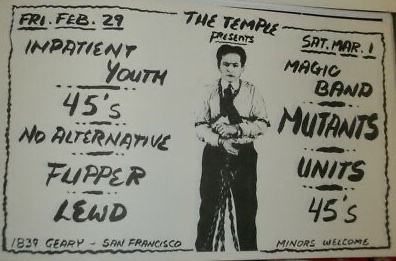 FRI. FEB. 29
INPATIENT
YOUTH
45's
NO ALTERNATIVE
FLIPPER
LEWD
1839 GEARY - SAN FRANCISCO
THE TEMPLE
PRESENTS
SAT. MAR. 1
MAGIC
BAND
MUTANTS
UNITS
45's
MINORS WELCOME